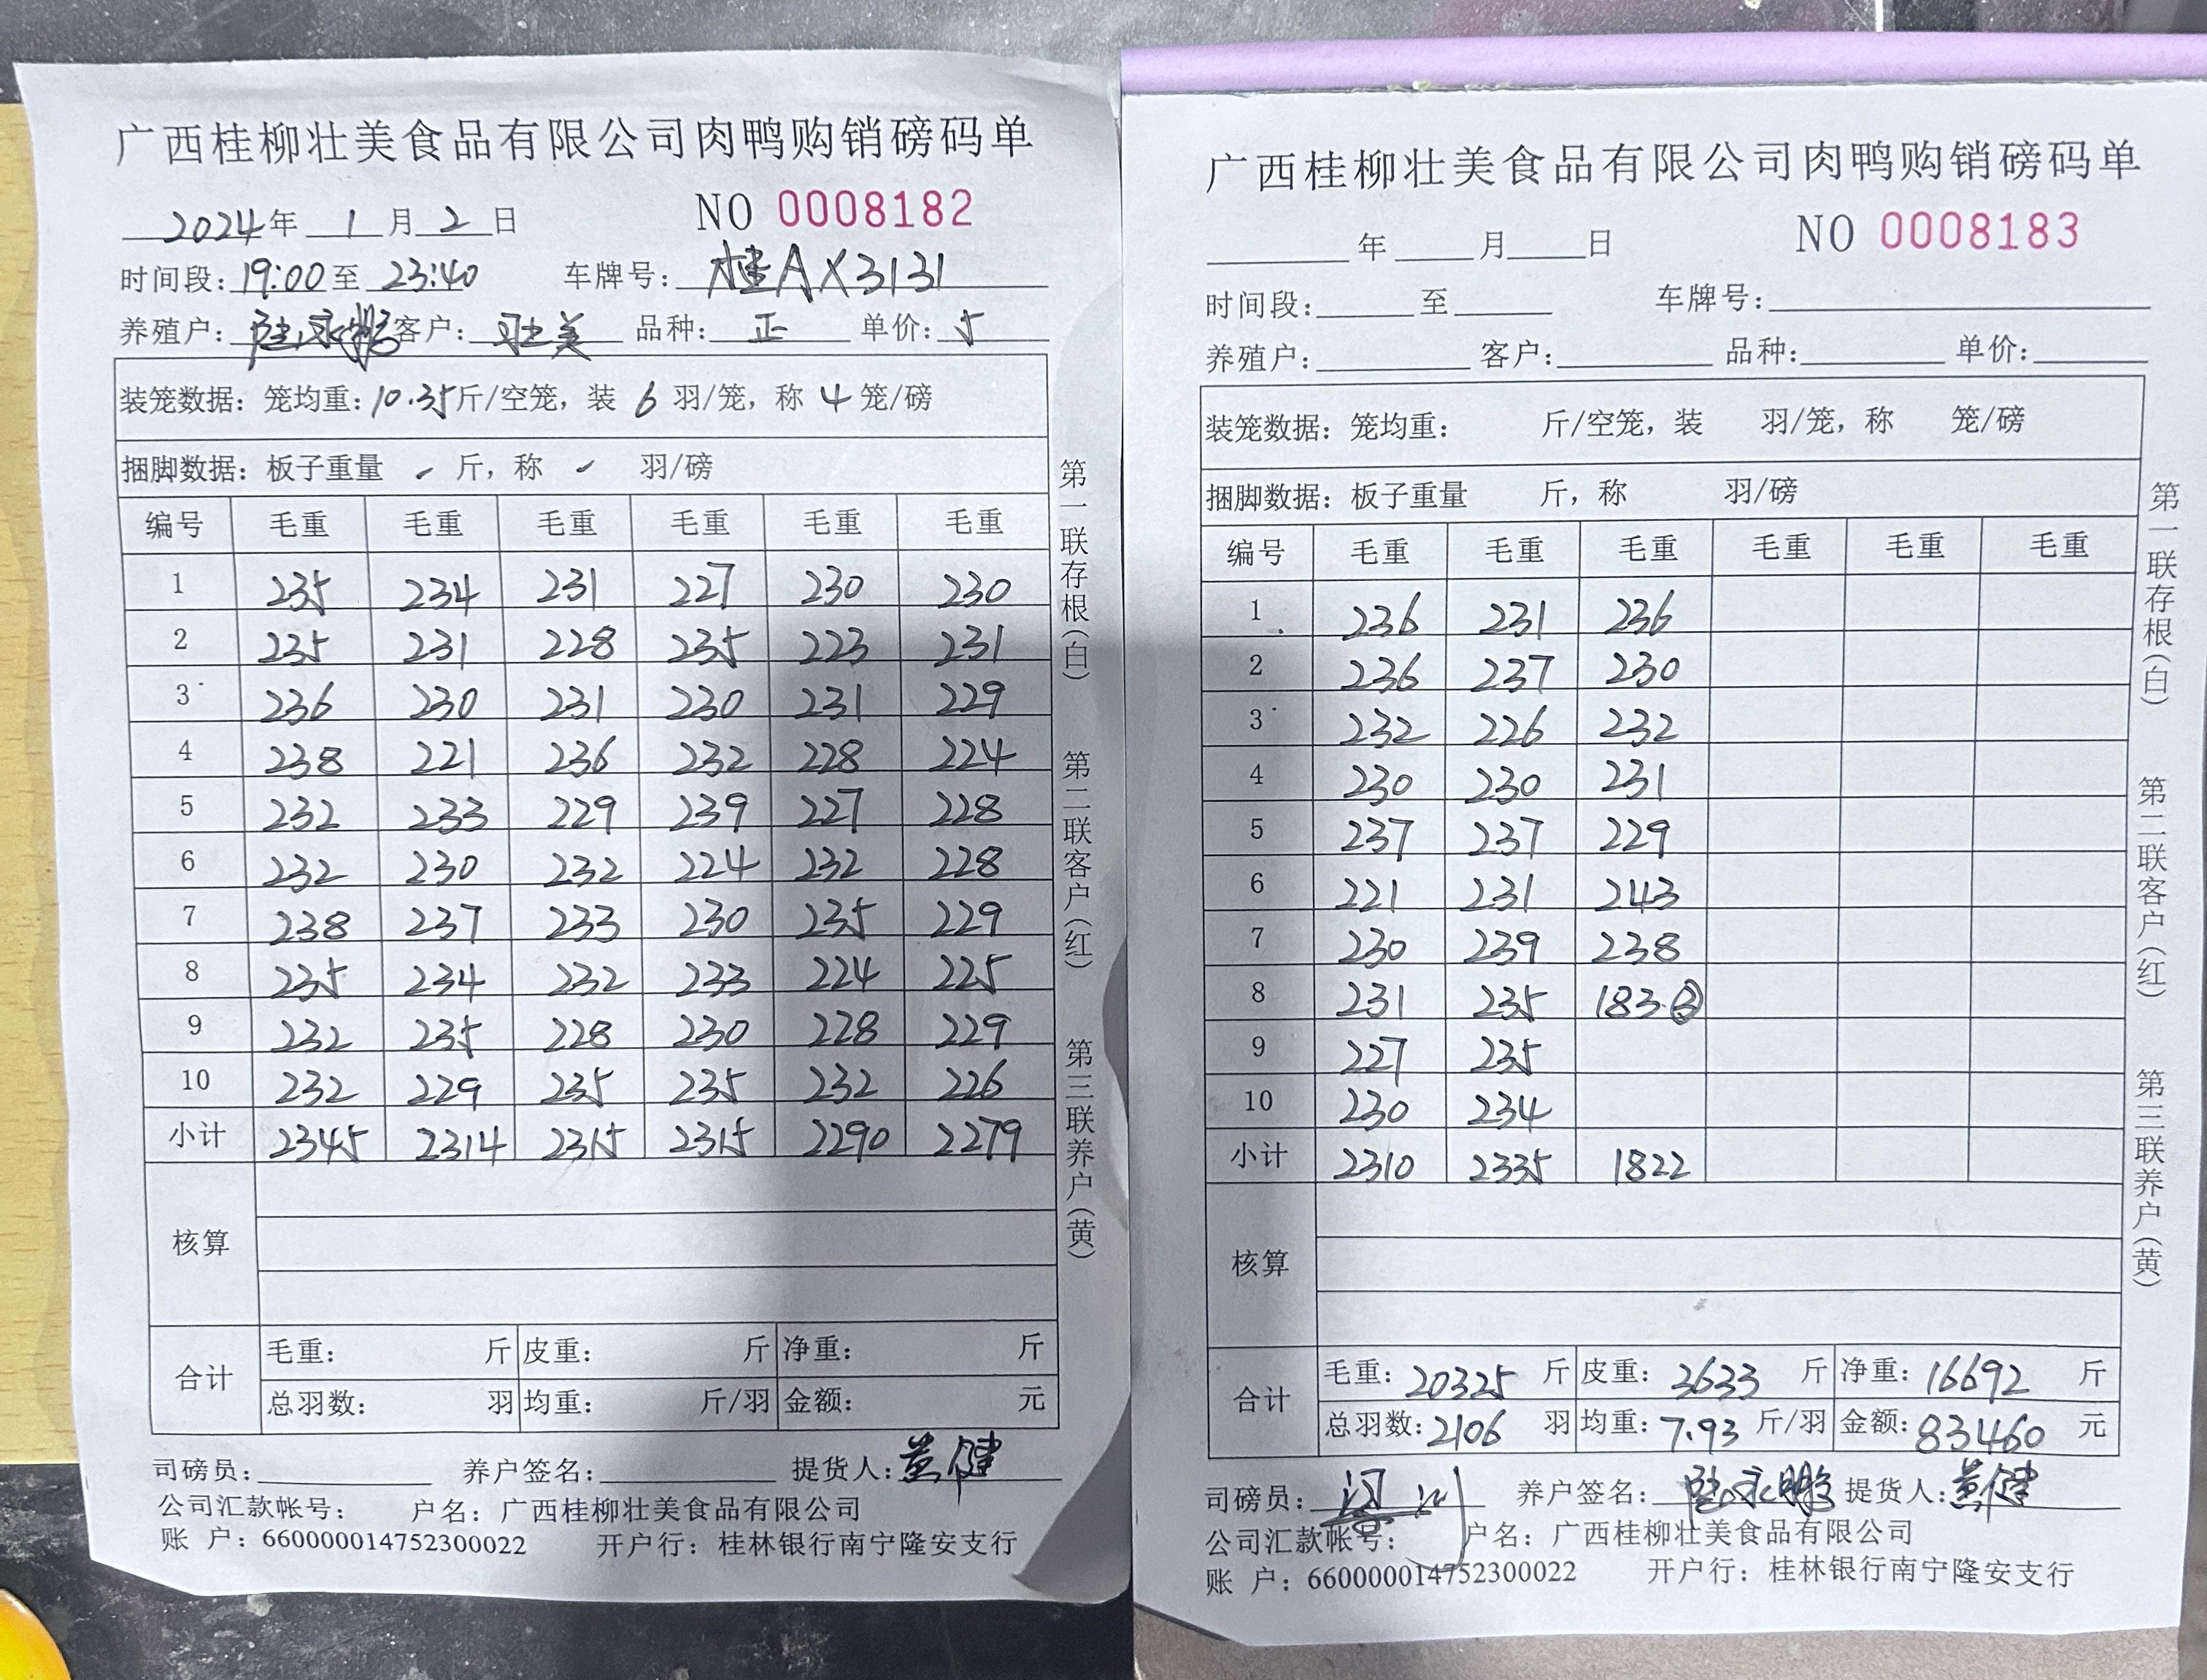 广西桂柳壮美食品有限公司肉鸭购销磅码单
NO 0008182
2024年 1月2日
时间段:19:00至 23:40 车牌号:桂AX3131
养殖户:陆永鹏客户:壮美 品种:正 单价:5
装笼数据:笼均重:10.35斤/空笼,装 6 羽/笼,称 4 笼/磅
捆脚数据:板子重量 斤,称 羽/磅
编号 毛重 毛重 毛重 毛重 毛重 毛重
1 235 234 231 227 230 230
2 235 231 228 235 223 231
3 236 230 231 230 231 229
4 238 221 236 232 228 224
5 232 233 229 239 227 228
6 232 230 232 224 232 228
7 238 237 233 230 235 229
8 235 234 232 233 224 225
9 232 235 228 230 228 229
10 232 229 235 235 232 226
小计 2345 2314 2315 2315 2290 2279
核算
合计
毛重: 斤 皮重: 斤 净重: 斤
总羽数: 羽 均重: 斤/羽 金额: 元
司磅员: 养户签名: 提货人:黄健
公司汇款帐号: 户名:广西桂柳壮美食品有限公司
账 户:660000014752300022 开户行:桂林银行南宁隆安支行
第一联存根(白) 第二联客户(红) 第三联养户(黄)
广西桂柳壮美食品有限公司肉鸭购销磅码单
NO 0008183
年 月 日
时间段: 至 车牌号:
养殖户: 客户: 品种: 单价:
装笼数据:笼均重: 斤/空笼,装 羽/笼,称 笼/磅
捆脚数据:板子重量 斤,称 羽/磅
编号 毛重 毛重 毛重 毛重 毛重 毛重
1 236 231 236
2 236 237 230
3 232 226 232
4 230 230 231
5 237 237 229
6 221 231 243
7 230 239 238
8 231 235 183
9 227 235
10 230 234
小计 2310 2335 1822
核算
合计
毛重:20325 斤 皮重:3633 斤 净重:16692 斤
总羽数:2106 羽 均重:7.93 斤/羽 金额:83460 元
司磅员: 养户签名:陆永鹏 提货人:黄健
公司汇款帐号: 户名:广西桂柳壮美食品有限公司
账 户:660000014752300022 开户行:桂林银行南宁隆安支行
第一联存根(白) 第二联客户(红) 第三联养户(黄)